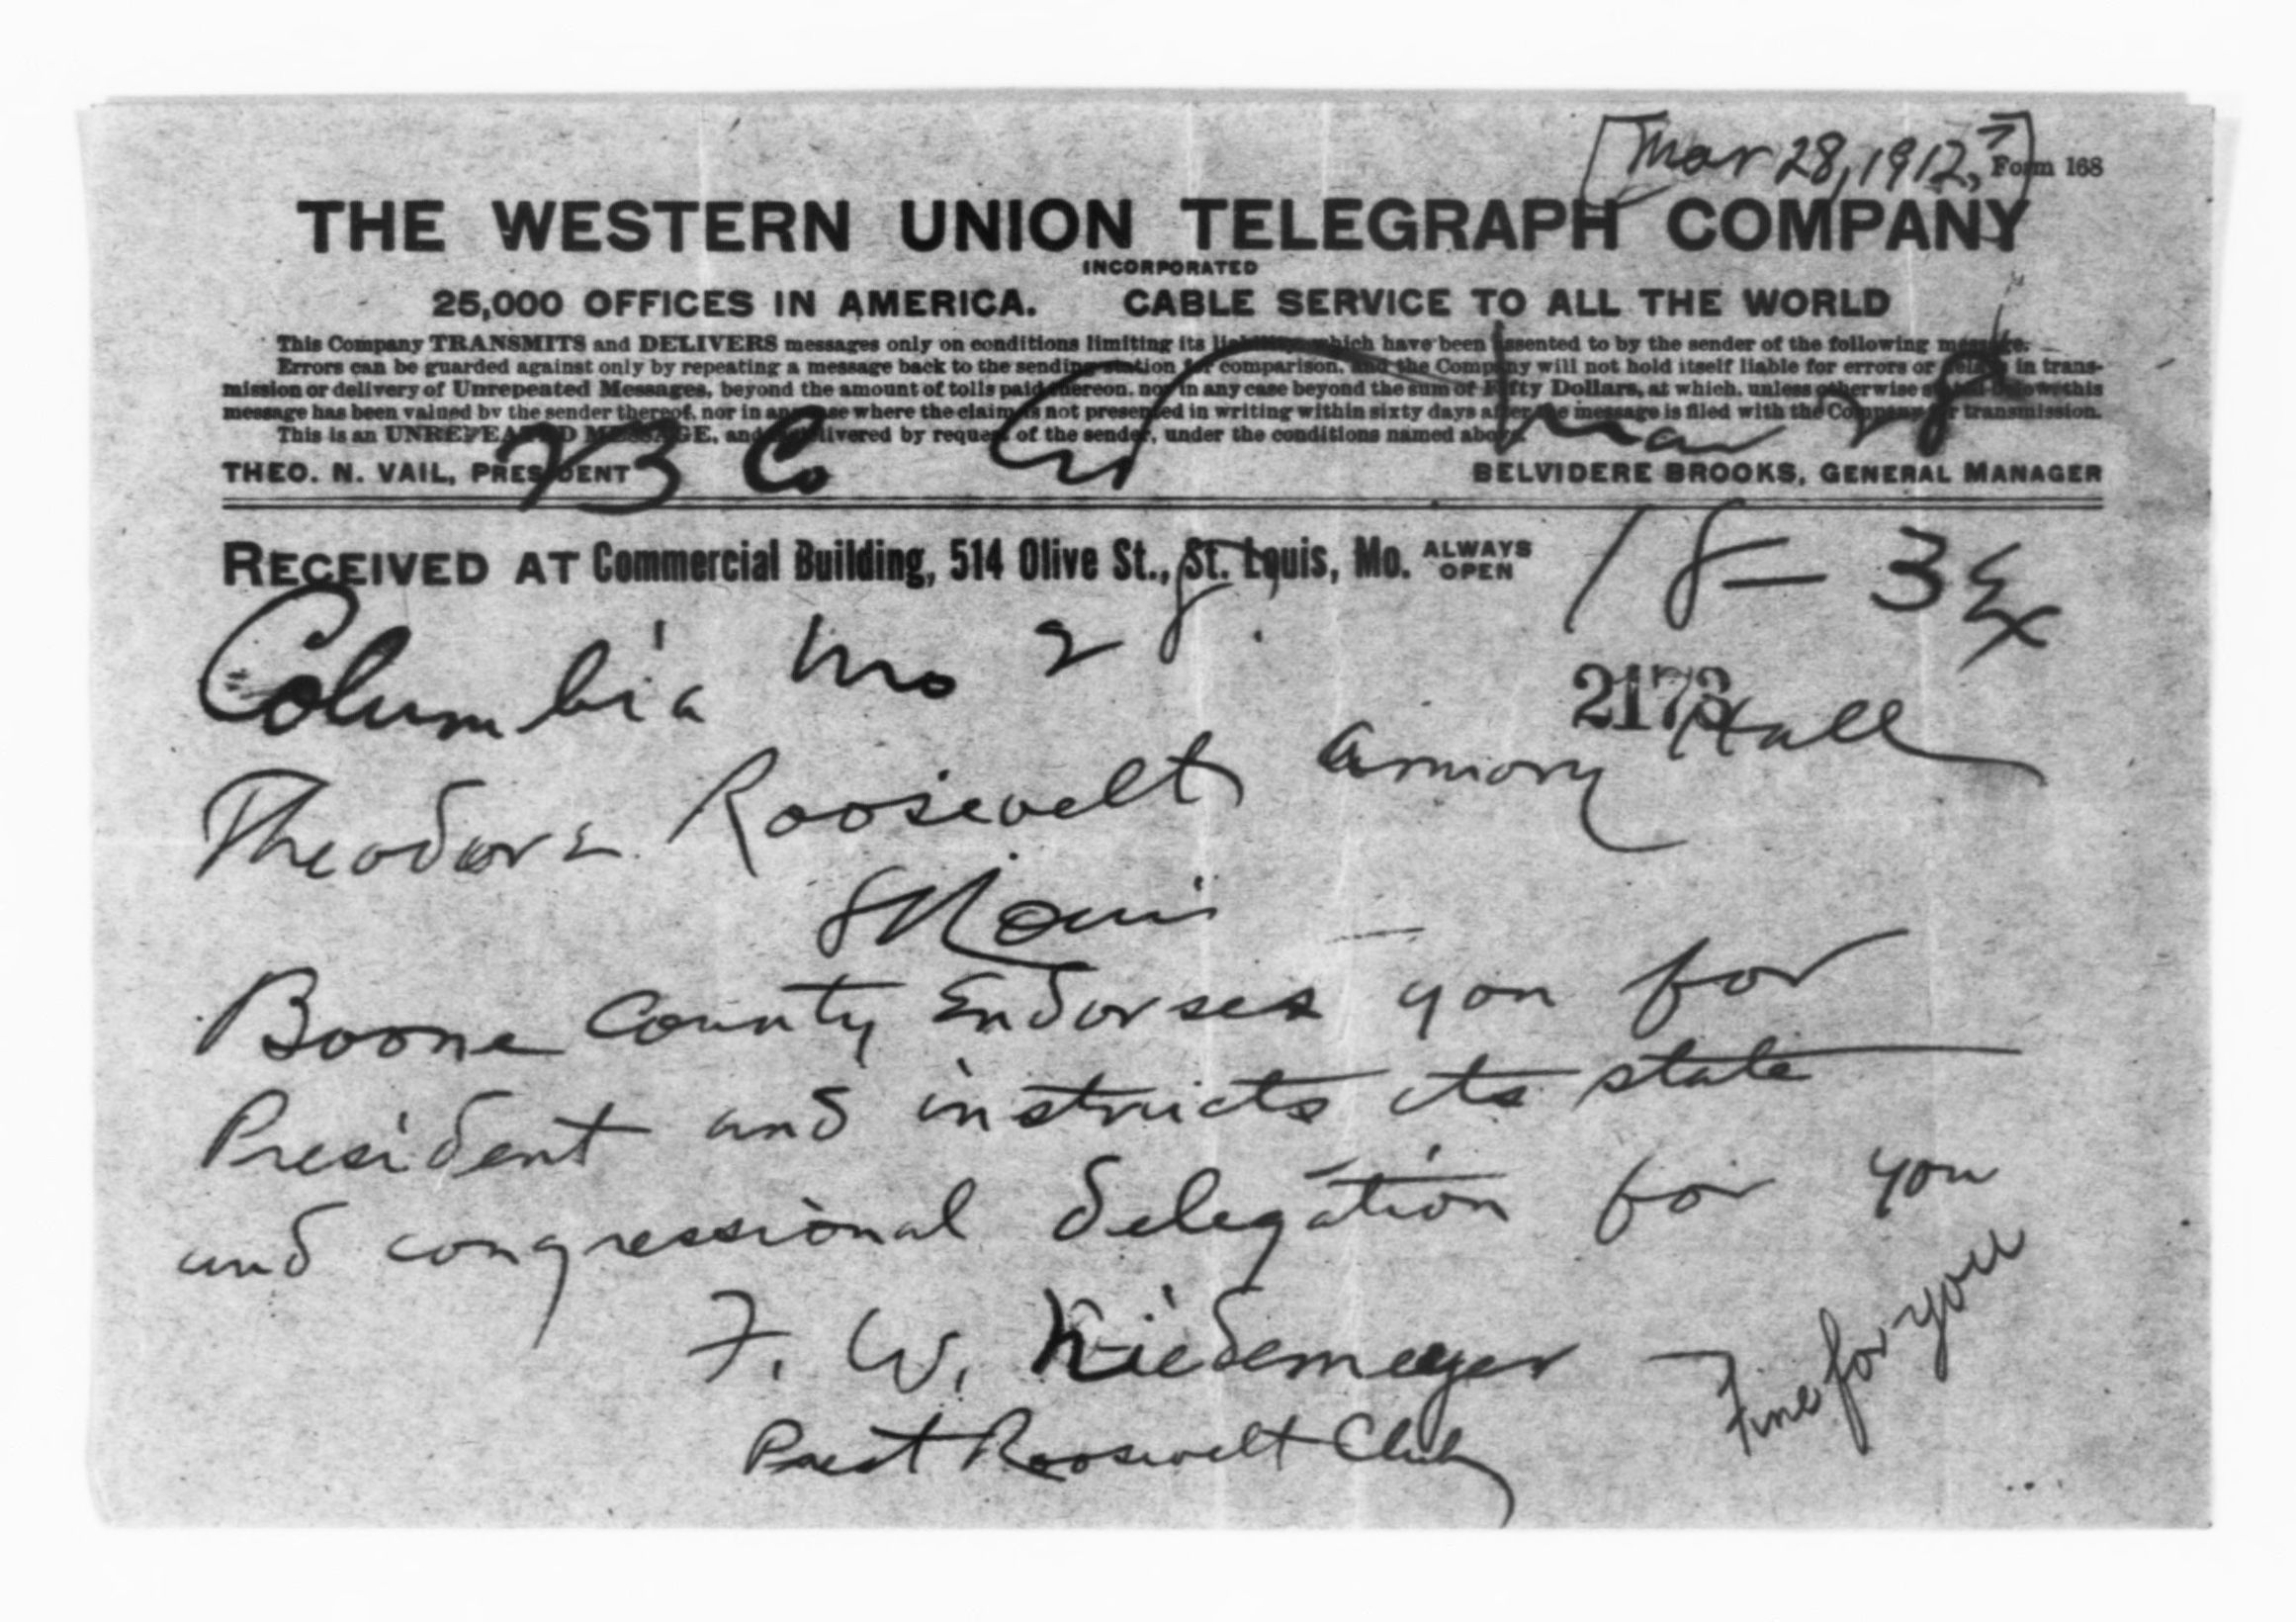 [Mar 28, 1912?]
Form 168
THE WESTERN UNION TELEGRAPH COMPANY
INCORPORATED
25,000 OFFICES IN AMERICA. CABLE SERVICE TO ALL THE WORLD
This Company TRANSMITS and DELIVERS messages only on conditions limiting its liability, which have been assented to by the sender of the following message.
Errors can be guarded against only by repeating a message back to the sending station for comparison, and the Company will not hold itself liable for errors or delays in trans-
mission or delivery of Unrepeated Messages, beyond the amount of tolls paid thereon, nor in any case beyond the sum of Fifty Dollars, at which, unless otherwise stated below, this
message has been valued by the sender thereof, nor in any case where the claim is not presented in writing within sixty days after the message is filed with the Company for transmission.
This is an UNREPEATED MESSAGE, and is delivered by request of the sender, under the conditions named above.
THEO. N. VAIL, PRESIDENT BELVIDERE BROOKS, GENERAL MANAGER
Co Mar 28
RECEIVED AT Commercial Building, 514 Olive St., St. Louis, Mo. ALWAYS OPEN
Columbia Mo 28.
2173
Theodore Roosevelt Armory Hall
St Louis
Boone County Endorses you for
President and instructs its state
and congressional delegation for you
F. W. Niedemeyer
Prest Roosevelt Club
Fine for you